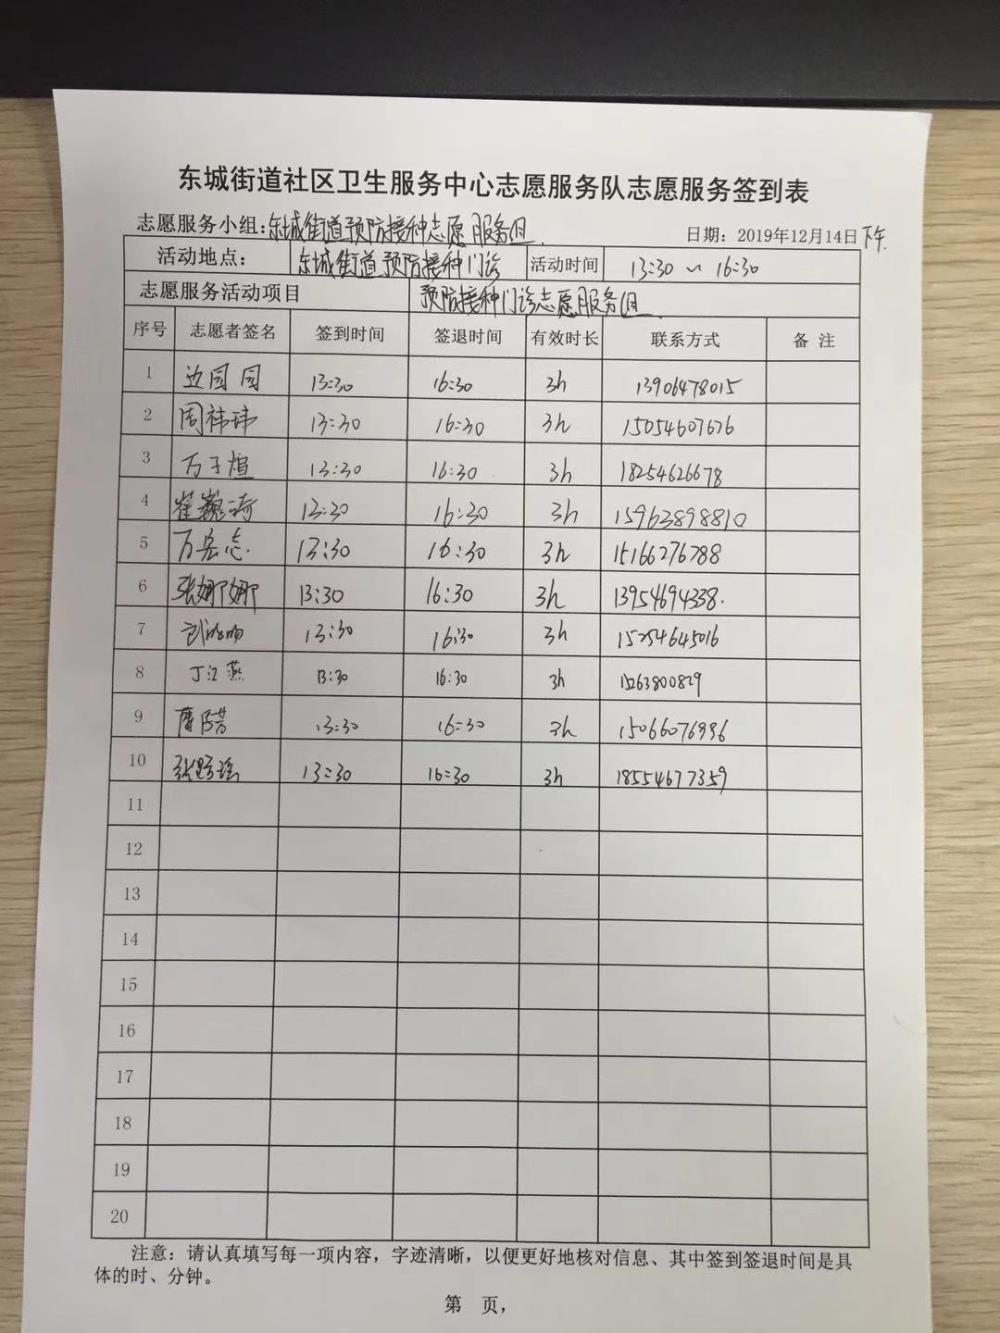 东城街道社区卫生服务中心志愿服务队志愿服务签到表
志愿服务小组:东城街道预防接种志愿服务组. 日期: 2019年12月14日下午.
活动地点: 东城街道预防接种门诊 活动时间 13:30 ~ 16:30
志愿服务活动项目 预防接种门诊志愿服务组.
序号 志愿者签名 签到时间 签退时间 有效时长 联系方式 备 注
1 边园园 13:30 16:30 3h 13906478015
2 周祎玮 13:30 16:30 3h 15054607676
3 万子煊 13:30 16:30 3h 18254626678
4 崔巍琦 13:30 16:30 3h 15963898810
5 万岳志 13:30 16:30 3h 15166276788
6 张娜娜 13:30 16:30 3h 13954694338.
7 13:30 16:30 3h 15254645016
8 丁江燕 13:30 16:30 3h 15263800829
9 13:30 16:30 3h 15066076996
10 13:30 16:30 3h 18554677359
11
12
13
14
15
16
17
18
19
20
注意: 请认真填写每一项内容, 字迹清晰, 以便更好地核对信息、其中签到签退时间是具
体的时、分钟。
第 页,